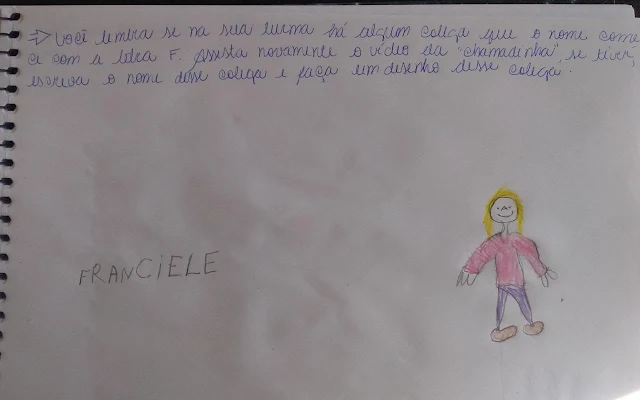 ⇒ Você lembra se na sua turma há algum colega que o nome come
ce com a letra F. Assista novamente o vídeo da "chamadinha", se tiver,
escreva o nome desse colega e faça um desenho desse colega.
FRANCIELE